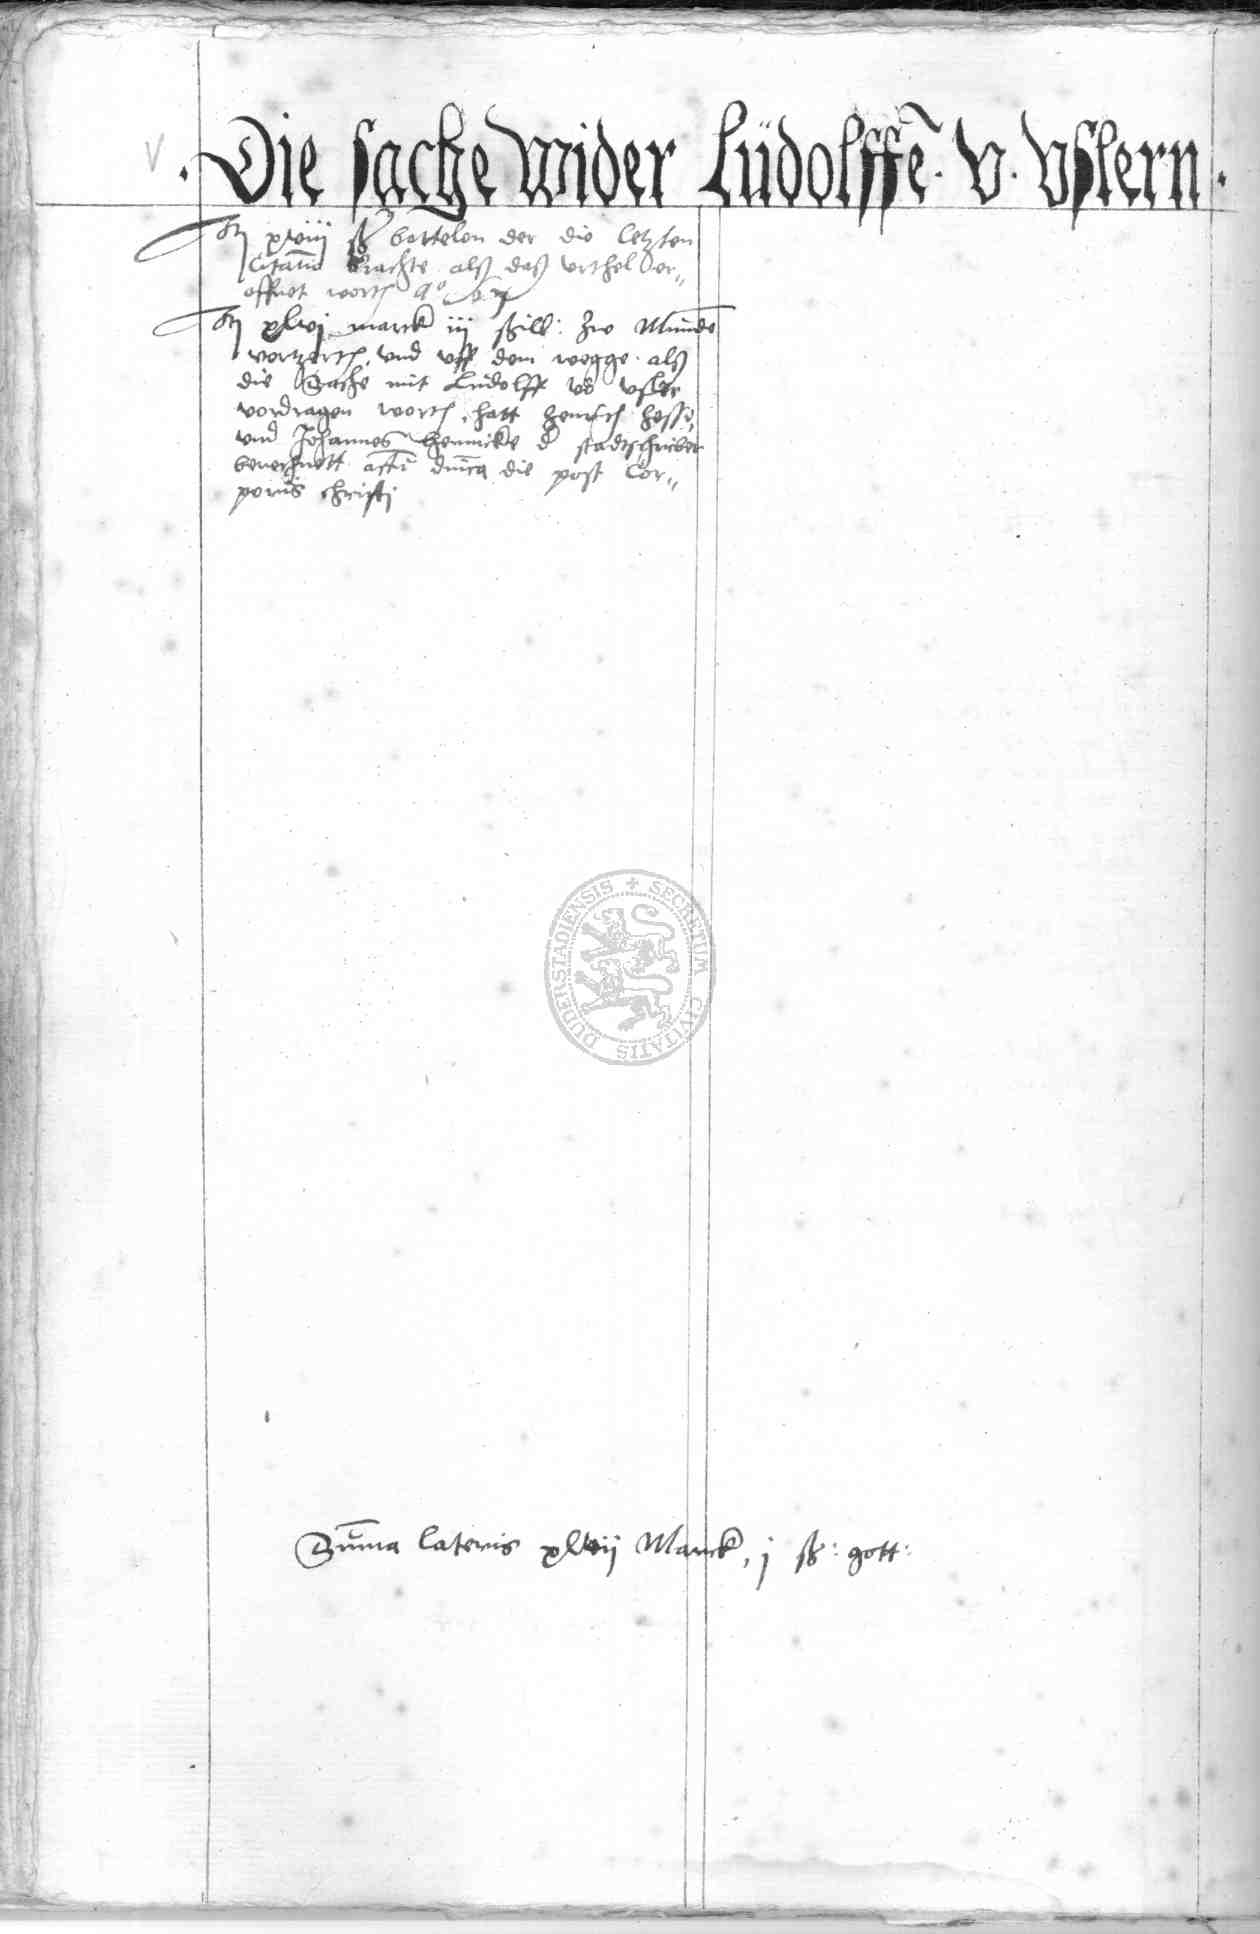 v
. Die sache wider Lüdolffe͂. v. Vslern .
It xviij ß bottelen der die letzten
Citatio͂ brachte alß daß vrthel er„
offnet wort
It xlvj marck iij schill: zw Munde͂
vortzert, vnd vff dem wegge alß
die Sache mit Ludolff vo͂ vsler
vordragen wort, hatt Henrich Hesse,
vnd Johannes Hennicke d stadtschriber
berechnett act͂ d͂nica die post Cor„
poris christi
Su͂ma lateris xlvij Marck, j ß: gott:
DUDERSTADIENSIS + SECRETUM CIVITATIS